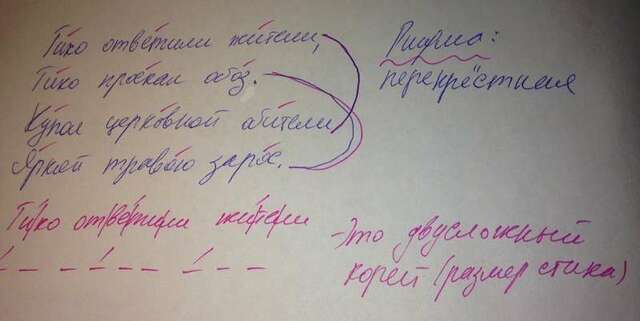 Тихо ответили жители,
Тихо проехал обоз.
Купол церковной абители
Яркой травою зарос.
Рифма:
перекрёстная
Тихо ответили жители
– Это двусложный
хорей (размер стиха)